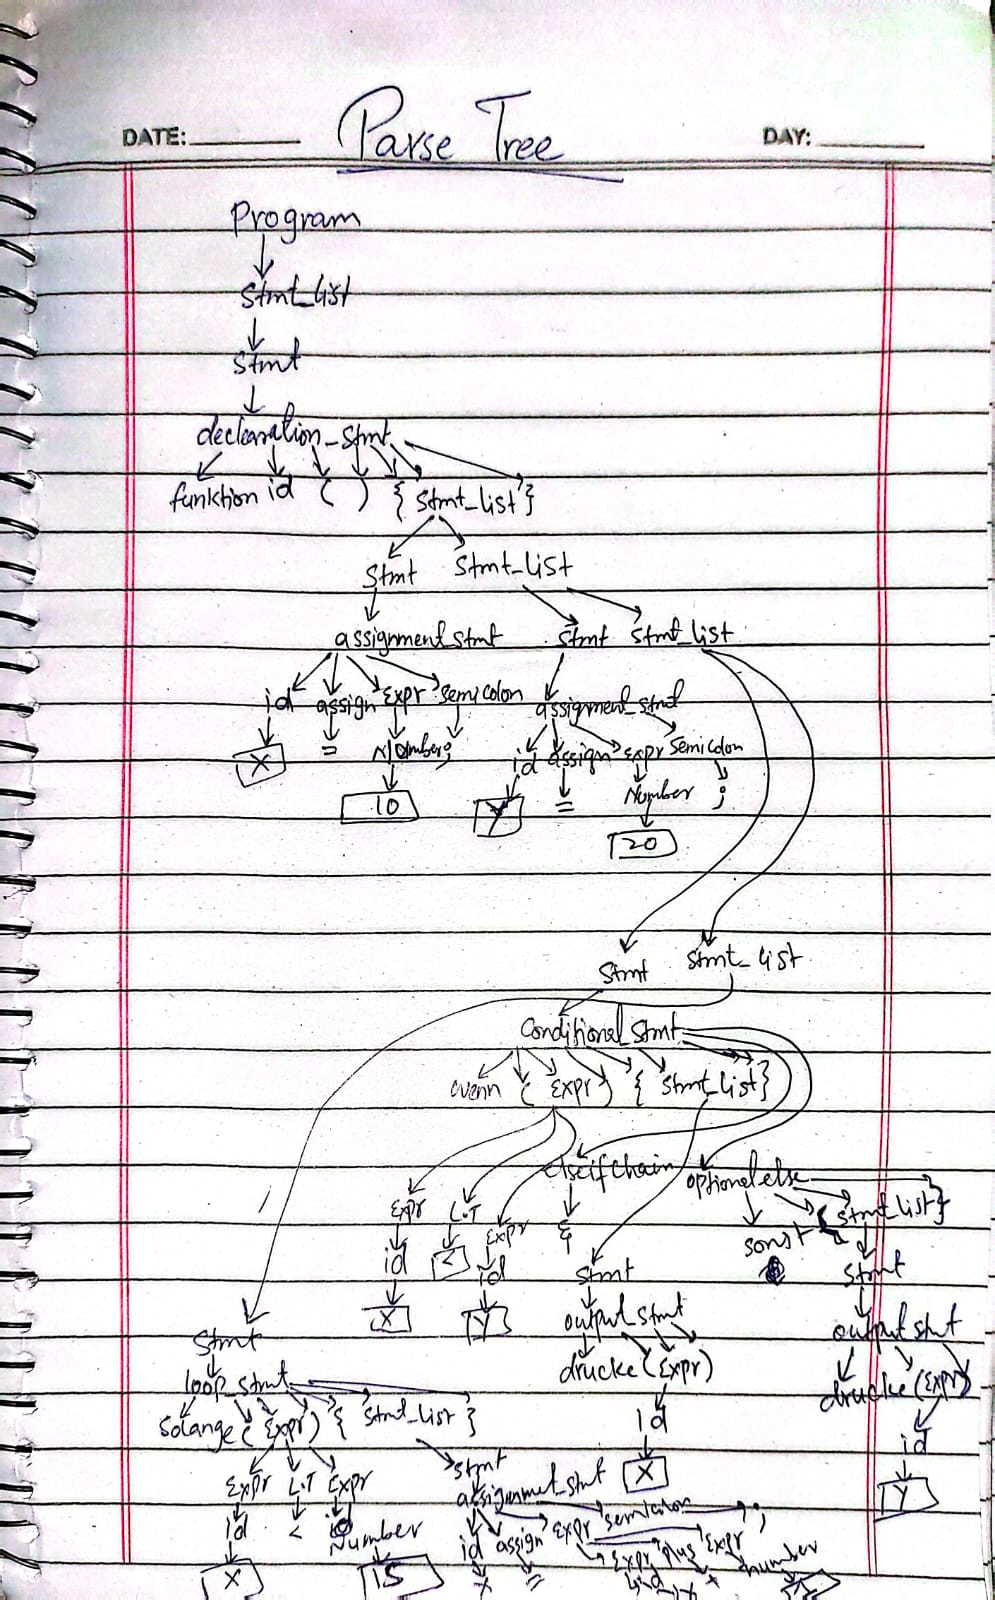 DATE: Parse Tree DAY:
Program
Stmt_list
Stmt
declearation_stmt
funktion id ( ) { Stmt_list }
Stmt Stmt_list
assignment_stmt Stmt Stmt_list
id assign Expr Semicolon assignment_stmt
X = Number ; id assign expr Semicolon
10 Y = Number ;
20
Stmt Stmt_list
Conditional_Stmt
wenn ( Expr ) { Stmt_List }
elseifchain optionalelse
Expr L.T Expr sonst { Stmt_List }
id < id Stmt Stmt
X Y output_stmt output_stmt
Stmt drucke (Expr) drucke (Expr)
loop_stmt id id
Solange ( Expr ) { Stmt_list } X Y
Expr L.T Expr Stmt
id < Number assignment_stmt
X 15 id assign Expr Semicolon ;
X = Expr plus Expr
id X + number